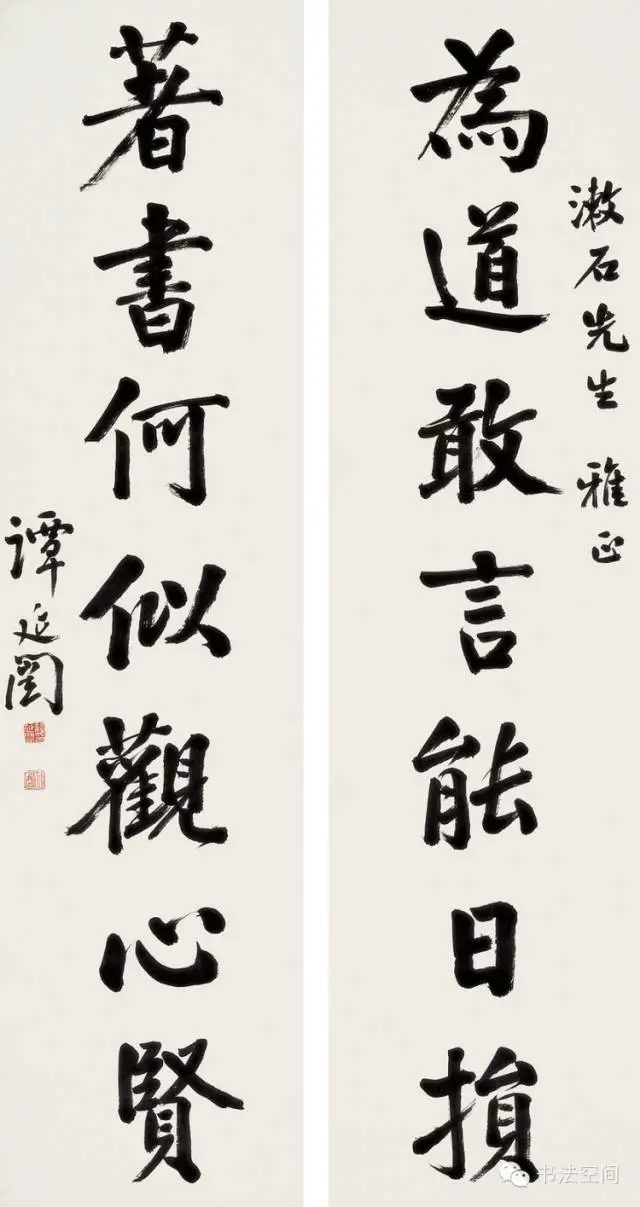 為道敢言能日損
漱石先生 雅正
著書何似觀心賢
譚延闓
书法空间